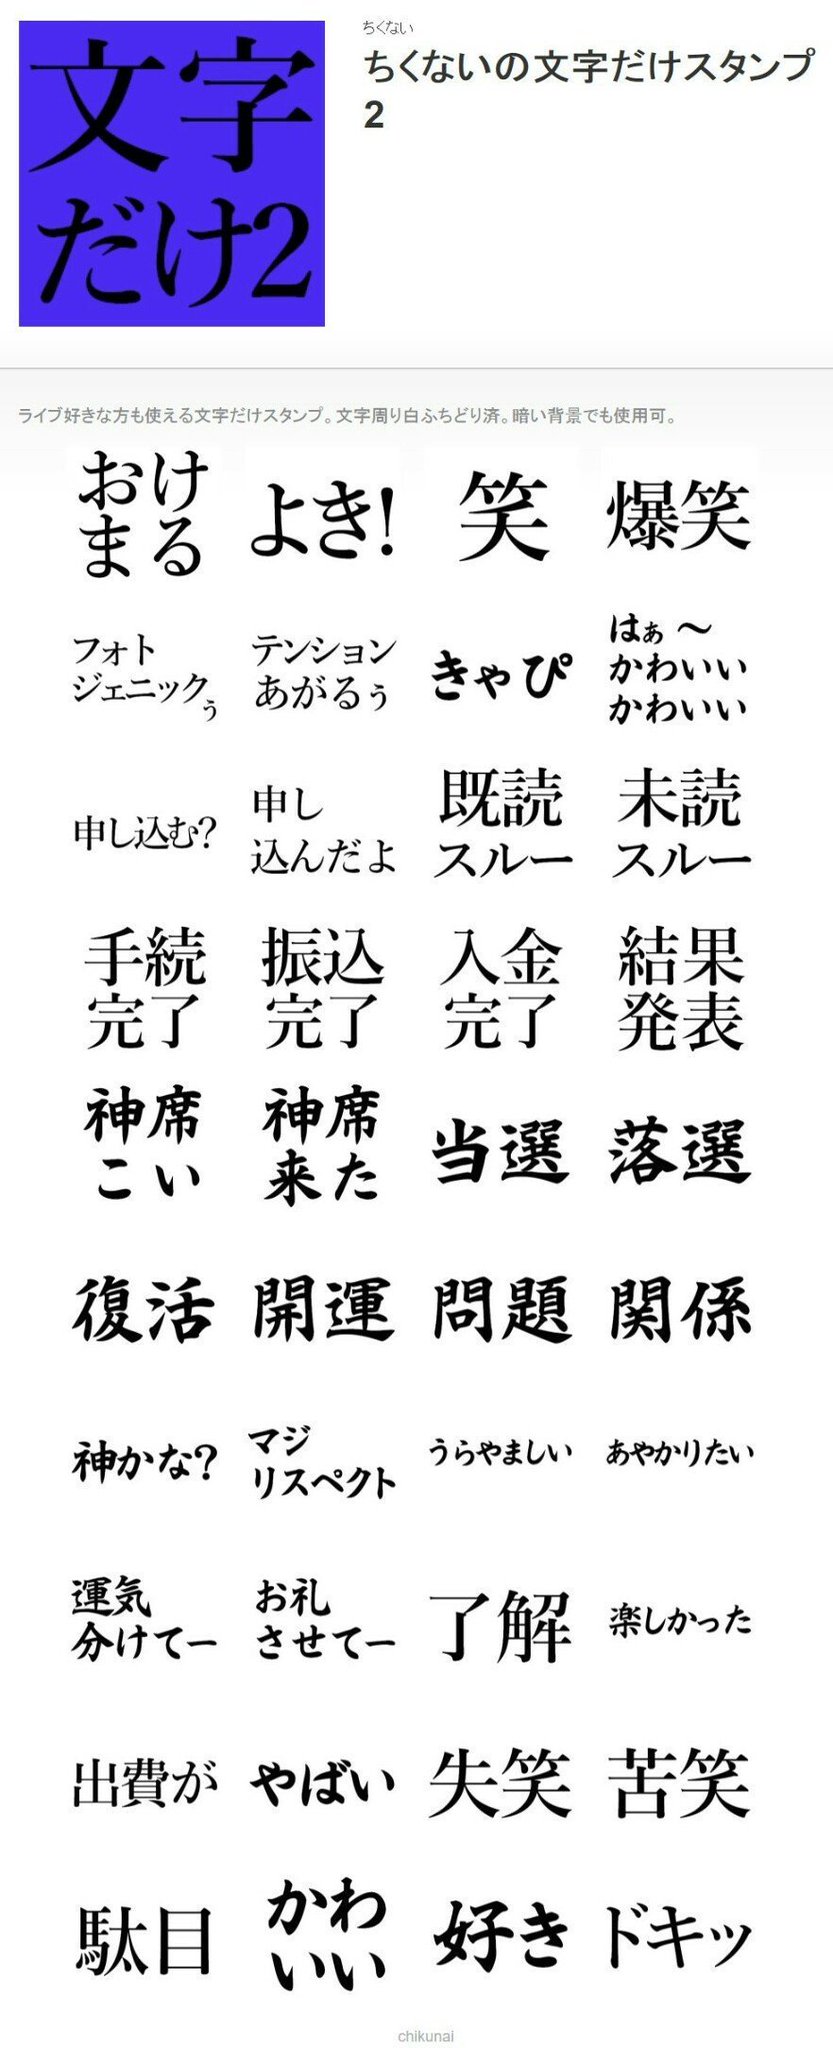 文字
だけ2
ちくない
ちくないの文字だけスタンプ
2
ライブ好きな方も使える文字だけスタンプ。文字周り白ふちどり済。暗い背景でも使用可。
おけ
まる
よき!
笑
爆笑
フォト
ジェニックぅ
テンション
あがるぅ
きゃぴ
はぁ〜
かわいい
かわいい
申し込む?
申し
込んだよ
既読
スルー
未読
スルー
手続
完了
振込
完了
入金
完了
結果
発表
神席
こい
神席
来た
当選
落選
復活
開運
問題
関係
神かな?
マジ
リスペクト
うらやましい
あやかりたい
運気
分けてー
お礼
させてー
了解
楽しかった
出費が
やばい
失笑
苦笑
駄目
かわ
いい
好き
ドキッ
chikunai